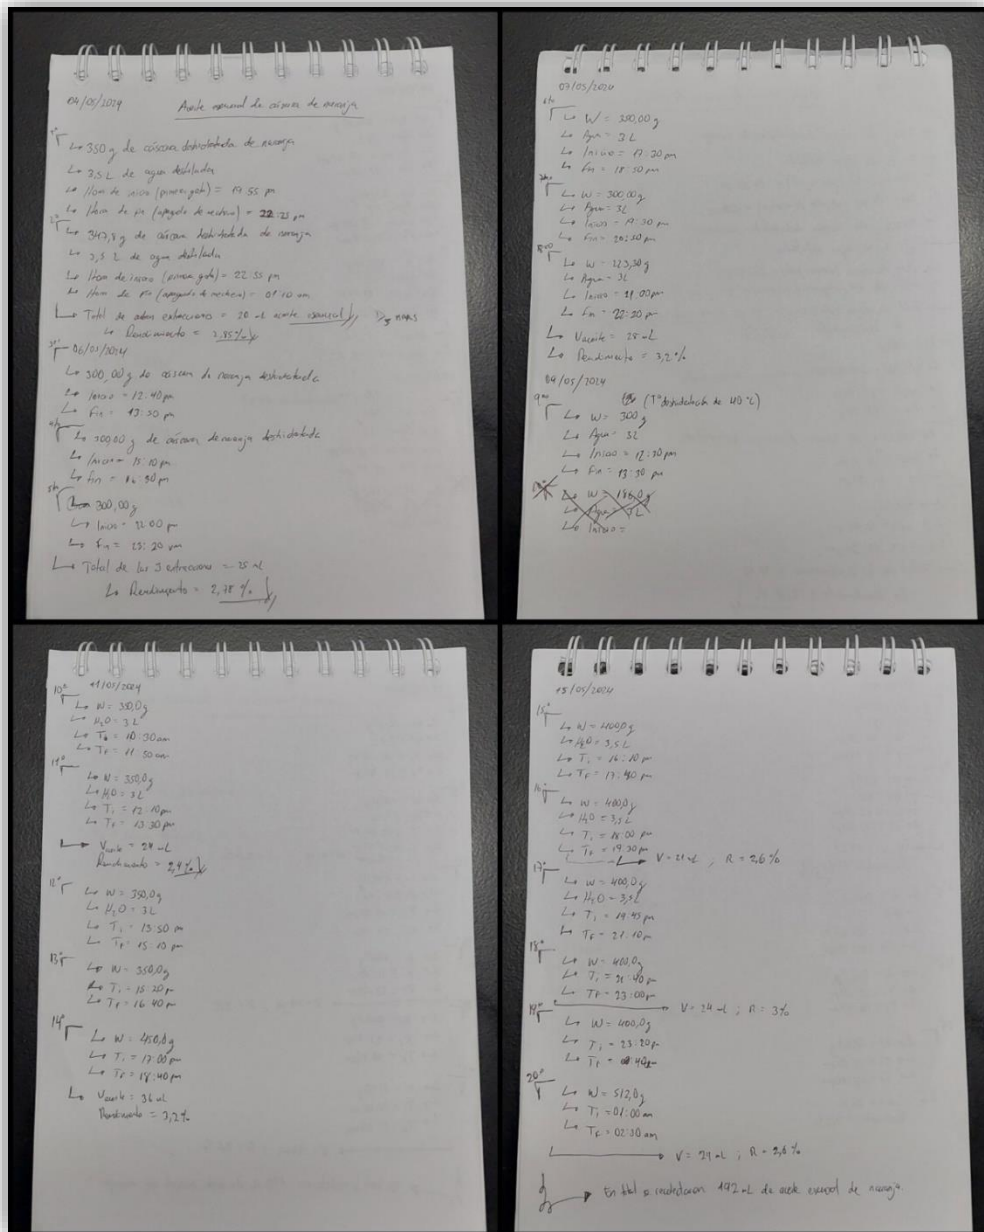 04/05/2024 Aceite esencial de cáscara de naranja
1°
↳ 350 g de cáscara deshidratada de naranja
↳ 3,5 L de agua destilada
↳ Hora de inicio (primera gota) = 19:55 pm
↳ Hora de fin (apagado de mechero) = 22:25 pm
2°
↳ 347,8 g de cáscara deshidratada de naranja
↳ 3,5 L de agua destilada
↳ Hora de inicio (primera gota) = 22:55 pm
↳ Hora de fin (apagado de mechero) = 01:10 am
↳ Total de ambas extracciones = 20 mL aceite esencial
↳ Rendimiento = 2,85%
06/05/2024
↳ 300,00 g de cáscara de naranja deshidratada
↳ Inicio = 12:40 pm
↳ Fin = 13:50 pm
4to
↳ 300,00 g de cáscara de naranja deshidratada
↳ Inicio = 15:10 pm
↳ Fin = 16:30 pm
5to
300,00 g
↳ Inicio = 22:00 pm
↳ Fin = 23:20 pm
↳ Total de las 3 extracciones = 25 mL
↳ Rendimiento = 2,78 %
07/05/2024
6to
↳ W = 350,00 g
↳ Agua = 3L
↳ Inicio = 17:30 pm
↳ Fin = 18:50 pm
↳ W = 300,00 g
↳ Agua = 3L
↳ Inicio = 19:30 pm
↳ Fin = 20:30 pm
8vo
↳ W = 223,30 g
↳ Agua = 3L
↳ Inicio = 21:00 pm
↳ Fin = 22:20 pm
↳ Vaceite = 28 mL
↳ Rendimiento = 3,2%
09/05/2024
9no (T° deshidratación de 40 °C)
↳ W = 300 g
↳ Agua = 3L
↳ Inicio = 12:30 pm
↳ Fin = 13:30 pm
↳ W = 186,0 g
↳ Agua = 3L
↳ Inicio =
11/05/2024
10°
↳ W = 350,0 g
↳ H2O = 3L
↳ Ti = 10:30 am
↳ Tf = 11:50 am
11°
↳ W = 350,0 g
↳ H2O = 3L
↳ Ti = 12:10 pm
↳ Tf = 13:30 pm
↳ Vaceite = 24 mL
Rendimiento = 2,4%
12°
↳ W = 350,0 g
↳ H2O = 3L
↳ Ti = 13:50 pm
↳ Tf = 15:10 pm
13°
↳ W = 350,0 g
↳ Ti = 15:20 pm
↳ Tf = 16:40 pm
14°
↳ W = 450,0 g
↳ Ti = 17:00 pm
↳ Tf = 18:40 pm
↳ Vaceite = 36 mL
Rendimiento = 3,2%
15/05/2024
15°
↳ W = 400,0 g
↳ H2O = 3,5 L
↳ Ti = 16:10 pm
↳ Tf = 17:40 pm
16°
↳ W = 400,0 g
↳ H2O = 3,5 L
↳ Ti = 18:00 pm
↳ Tf = 19:30 pm
→ V = 21 mL ; R = 2,6 %
17°
↳ W = 400,0 g
↳ H2O = 3,5 L
↳ Ti = 19:45 pm
↳ Tf = 21:10 pm
18°
↳ W = 400,0 g
↳ Ti = 21:40 pm
↳ Tf = 23:00 pm
→ V = 24 mL ; R = 3%
19°
↳ W = 400,0 g
↳ Ti = 23:20 pm
↳ Tf =
20°
↳ W = 512,0 g
↳ Ti = 01:00 am
↳ Tf = 02:30 am
→ V = 24 mL ; R = 2,6 %
→ En total se recolectaron 192 mL de aceite esencial de naranja